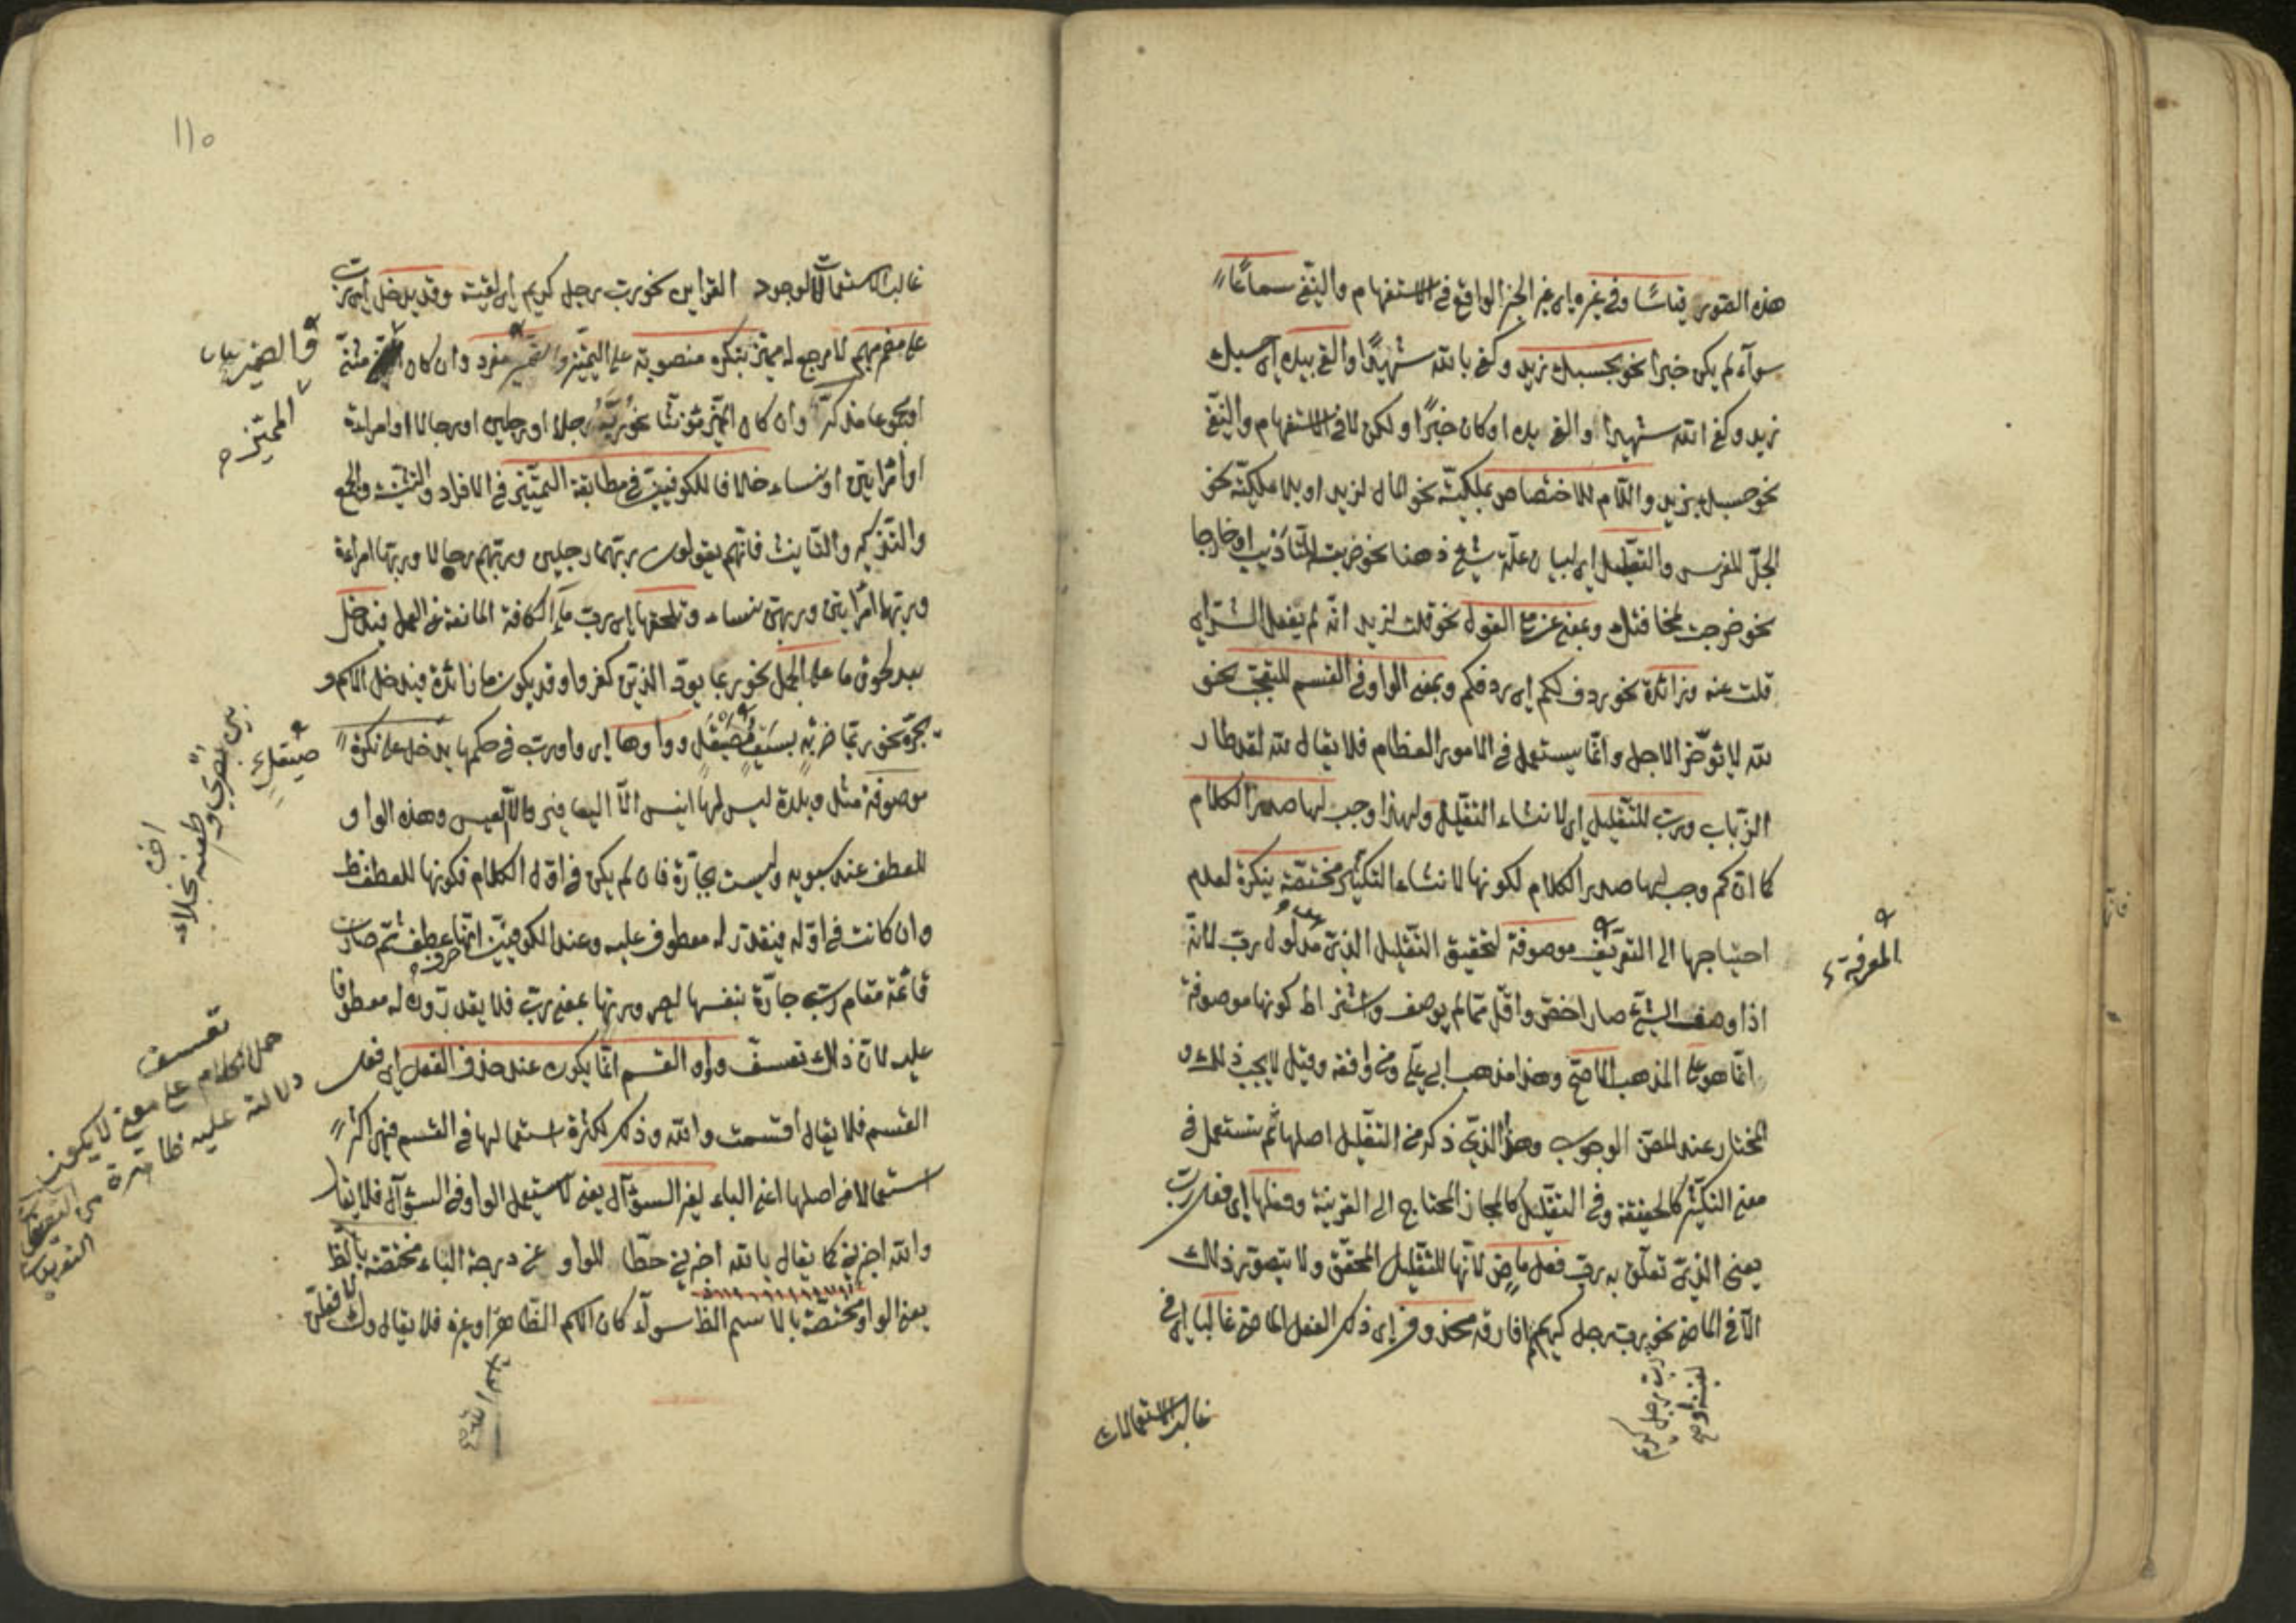 هذه الصور قياسًا وفي غيره اى غير الخبر الواقع في الاستفهام والنفي سماعًا
سوآء لم يكن خبرا نحو بحسبك زيد وكفى بالله شهيدًا والقى بيده اى حسبك
زيد وكفى الله شهيدا والقى يده او كان خبرًا ولكن لا في الاستفهام والنفي
نحو حسبك بزيد واللام للاختصاص بملكيّة نحو المال لزيد او بلا ملكيّة نحو
الجلّ للفرس والتعليل اى لبيان علّة شئ ذهنا نحو ضربت للتأذيب او خارجا
نحو خرجت لمخافتك وبمعنى عن مع القول نحو قلت لزيد انّه لم يفعل الشرّ اى
قلت عنه وزائدة نحو ردف لكم اى ردفكم وبمعنى الواو في القسم للتعجّب نحو
لله لا يؤخّر الاجل وانّما يستعمل في الامور العظام فلا يقال لله لقد طار
الذباب وربّ للتّقليل اى لانشاء التقليل ولهذا وجب لها صدر الكلام
كما انّ كم وجب لها صدر الكلام لكونها لانشاء التكثير مختصّة بنكرة لعدم
احتياجها الى التعريف موصوفة لتحقيق التّقليل الذي هو مدلول ربّ لانّه
المعرفة
اذا وصف الشّئ صار اخصّ واقلّ ممّا لم يوصف واشتراط كونها موصوفة
انّما هو على المذهب الاصحّ وهذا مذهب ابى علىّ ومن وافقه وقيل لا يجب ذلك و
المختار عند المص الوجوب وهذا الذي ذكر من التقليل اصلها ثم تستعمل في
معنى التكثير كالحقيقة وفي التقليل كالمجاز المحتاج الى القرينة وفعلها اى فعل ربّ
يعنى الذي تعلّق به ربّ فعل ماض لانّها للتّقليل المحقّق ولا يتصوّر ذلك
الّا في الماضى نحو ربّ رجل كريم لم افارقه محذوف اى ذلك الفعل الماضى غالبا اى في
ربّ رجل كريم
لقيته او
غالب الاستعمالات
١١٥
غالب الاستعمالات لوجود القراين نحو ربّ رجل كريم اى لقيته وقد يدخل اى ربّ
على مضمر مبهم لا مرجع له مميّز بنكرة منصوبة على التميّز والضمير مفرد وان كان المميّز مثنّى
والضمير
المميّز
او مجموعا مذكّر وان كان المميّز مؤنثا نحو ربّه رجلا او رجلين او رجالا او امراءة
او امراتين او نساء خلافا للكوفيين في مطابقة التميّز في الافراد والتثنية والجمع
والتذكير والتانيث فانهم يقولون ربّهما رجلين وربّهم رجالا وربّها امراءة
وربّهما امراتين وربّهنّ نساء وتلحقها اى ربّ مآ الكافة المانعة عن العمل فيدخل
بعد لحوق ما على الجمل نحو ربما يودّ الذين كفروا وقد يكون ما زائدة فيدخل الاسم و
يجرّه نحو ربّما ضربة بسيف صَيقل وواوها اى واو ربّ في حكمها يدخل على نكرة
صيقل
بين بصرى و
طعنة نجلاء
موصوفة مثل وبلدة ليس لها انيس الّا اليعافير والّا العيس وهذه الواو
للعطف عند سيبويه وليست بجارّة فان لم يكن في اوّل الكلام فكونها للعطف ظ
وان كانت في اوّله فيقدّر له معطوف عليه وعند الكوفيين انّها حرف عطف ثمّ صارت
قائمة مقام ربّ جارّة بنفسها لصيرورتها بمعنى ربّ فلا يقدّرون له معطوفا
عليه لانّ ذلك تعسف وواو القسم انّما يكون عند حذف الفعل اى فعل
تعسف
حمل الكلام على معنى لا يكون
دلالته عليه ظاهرة
القسم فلا يقال اقسمت والله وذلك لكثرة استعمالها في القسم فهى اكثر
استعمالا من اصلها اعنى الباء لغير السؤآل يعنى لا يستعمل الواو في السؤآل فلا يقال
والله اخبرنى كما يقال بالله اخبرنى حطّا للواو عن درجة الباء مختصّة بالظ
يعنى الواو مختصّة بالاسم الظ سوآء كان الاسم الظاهر او غيره فلا يقال وك لافعلنّ
اسم الله